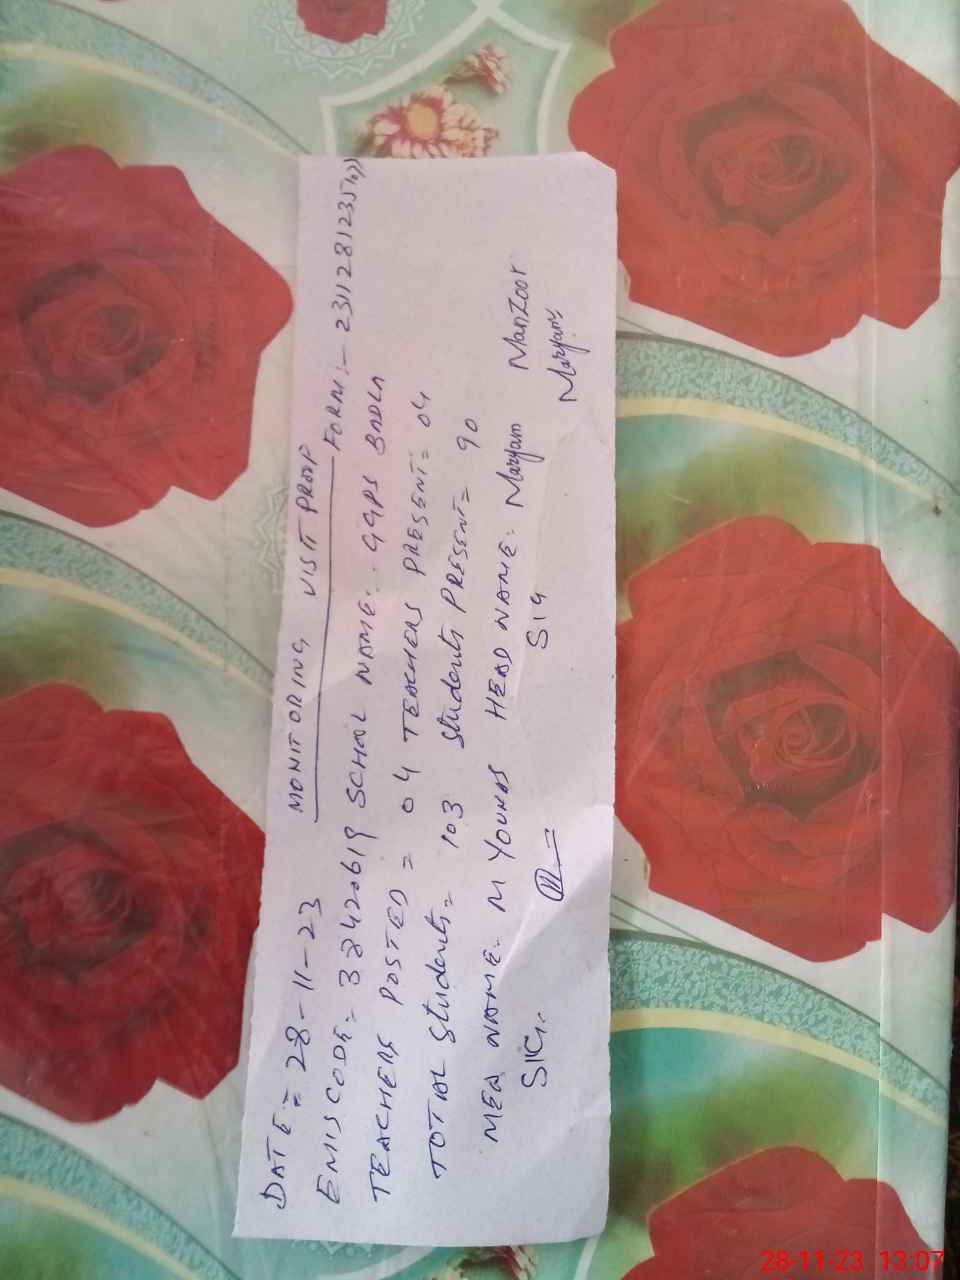 MONITORING VISIT PROOF
DATE:= 28-11-23 FORM:- 23112812357077
EMIS CODE= 32420619 SCHOOL NAME:. GGPS BADLA
TEACHERS POSTED = 04 TEACHERS PRESENT:= 04
TOTAL Students= 103 Students PRESENT= 90
MEA NAME:. M YOUNAS HEAD NAME: Maryam Manzoor
SIG:. SIG Maryam
28-11-23 13:07